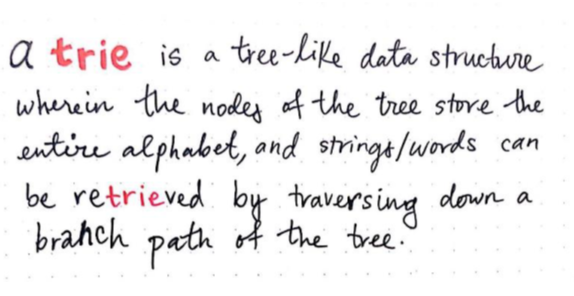 a trie is a tree-like data structure
wherein the nodes of the tree store the
entire alphabet, and strings/words can
be retrieved by traversing down a
branch path of the tree.